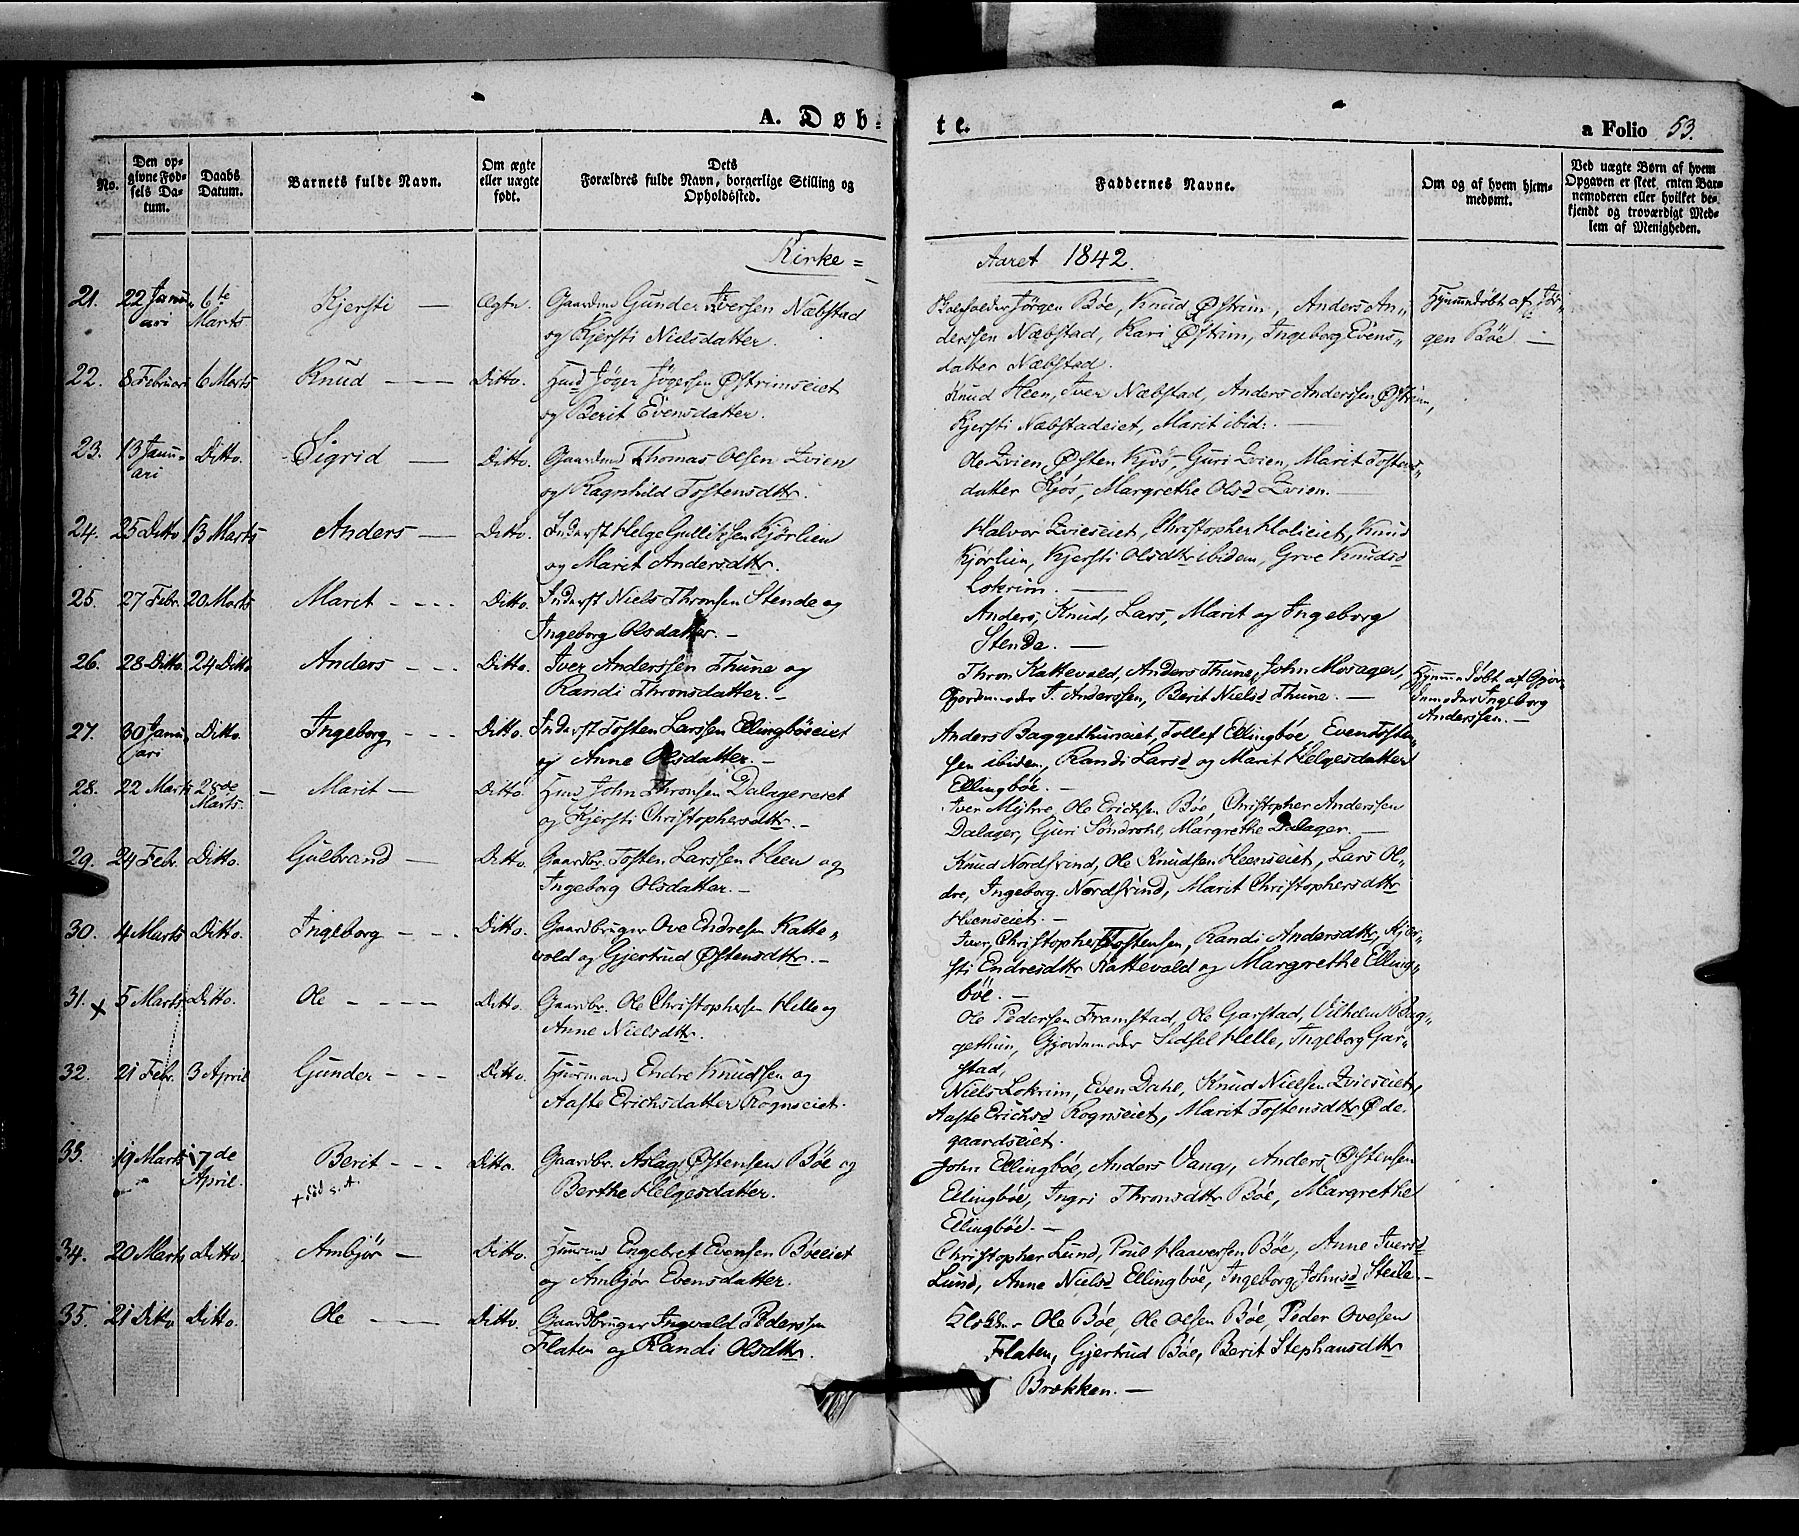 A. Døb-
te.
a Folio 53.
No.
Den op-
givne Fød-
sels Da-
tum.
Daabs
Datum.
Barnets fulde Navn.
Om ægte
eller uægte
født.
Dets
Forældres fulde Navn, borgerlige Stilling og
Opholdssted.
Faddernes Navne.
Om og af hvem hjem-
medømt.
Ved uægte Børn af hvem
Opgaven er skeet, enten Bar-
nemoderen eller hvilket be-
kjendt og troværdigt Med-
lem af Menigheden.
Kirke =
Aaret 1842.
21. 22 Janu- 6te Kjersti — Ægte. Gaardmd Gunder Iversen Næbstad
ari Marts og Kjersti Nielsdatter.
Jørgen Bøe, Knud Østrim, Anders An-
derssen Næbstad, Kari Østrim, Ingeborg Evens-
datter Næbstad.
Hjemmedøbt af Jør-
gen Bøe —
22. 8 Februari 6 Marts Knud - - - Ditto. Husd Jøger Jøgersen Østrimseiet
og Berit Evensdatter.
Knud Heen, Iver Næbstad, Anders Anderssen Østrim,
Kjersti Næbstadeiet, Marit ibid: —
23. 13 Janu- Ditto. Sigrid — Ditto. Gaardmd Thomas Olsen Qvien
ari og Ragnhild Tostensdtr.
Ole Qvien, Østen Kjøs, Guri Qvien, Marit Tostens-
datter Kjøs, Margrethe Olsd Qvien. —
24. 25 Ditto 13 Marts Anders — Ditto. Inderst Helge Gulliksen Kjørlien
og Marit Andersdtr.
Halvor Qvieseiet, Christopher Holieiet, Knud
Kjørlien, Kjersti Olsdtr ibidem, Groe Knudsd
Lokrim. —
25. 27 Febr. 20 Marts Marit - - - Ditto. Inderst Niels Thronsen Stende og
Ingeborg Olsdatter. —
Anders, Knud, Lars, Marit og Ingeborg
Stende. —
26. 28 Ditto. 24 Ditto Anders - - - Ditto. Iver Anderssen Thune og
Randi Thronsdatter. —
Thron Kattevold, Anders Thune, John Mosager,
Gjordemoder I. Anderssen, Berit Nielsd Thune. —
Hjemmedøbt af Gjor-
demoder Ingeborg
Anderssen. —
27. 30 Janu- Ditto. Ingeborg - - - Ditto. Inderst Tosten Larssen Ellingbøeeiet
ari og Anne Olsdatter. —
Anders Baggethuneiet, Tollef Ellingbøe, Even Tosten-
sen ibidem, Randi Larsd og Marit Helgesdatter
Ellingbøe. —
28. 22 Marts 28de — Marit — Ditto Husd John Thronsen Dalagereiet
Marts. og Kjersti Christophersdtr. —
Iver Myhre, Ole Erichsen Bøe, Christopher Anderssen
Dalager, Guri Søndrohl, Margrethe Dalager. —
29. 24 Febr. Ditto. Gulbrand — Ditto. Gaardbr. Tosten Larssen Heen og
Ingeborg Olsdatter. —
Knud Nordsvind, Ole Knudsen Heenseiet, Lars Ol-
dre, Ingeborg Nordsvind, Marit Christophersdtr
Heenseiet. —
30. 4 Marts Ditto. Ingeborg - - - Ditto. Gaardbruger Ove Endresen Katte-
vold og Gjertrud Østensdtr. —
Iver, Christopher Tostensen, Randi Andersdtr, Kjer-
sti Endresdtr Kattevold og Margrethe Elling-
bøe. —
31. x 5 Marts Ditto. Ole - - - - Ditto. Gaardbr. Ole Christophersen Helle og
Anne Nielsdtr.
Ole Pedersen Framstad, Ole Garstad, Vilhelm Bag-
gethun, Gjordemoder Sidsel Helle, Ingeborg Gar-
stad,
32. 21 Febr. 3 April Gunder - - - Ditto. Huusmand Endre Knudsen og
Aaste Erichsdatter Rogneiet.
Niels Lokrim, Even Dahl, Knud Nielsen Qvieseiet,
Aaste Erichsd Rogneiet, Marit Tostensdtr Øde-
gaardseiet.
33. 19 Marts 17de Berit - - - Ditto. Gaardbr. Aslag Østensen Bøe og
April. + død s. A. Berthe Helgesdatter.
John Ellingbøe, Anders Vang, Anders Østensen
Ellingbøe, Ingri Thronsdtr Bøe, Margrethe
Ellingbøe. —
34. 20 Marts Ditto. Ambjør — Ditto. Huusmd Engebret Evensen Bøeeiet
og Ambjør Evensdatter.
Christopher Lund, Poul Haaversen Bøe, Anne Iversd
Lund, Anne Nielsd Ellingbøe, Ingeborg Johnsd Steile. —
35. 21 Ditto Ditto. Ole - - - Ditto. Gaardbruger Ingvald Pederssen
Flaten og Randi Olsdtr.
Klokker Ole Bøe, Ole Olsen Bøe, Peder Ovesen
Flaten, Gjertrud Bøe, Berit Stephansdtr
Brækken. —